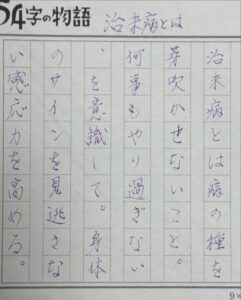 54字の物語 治未病とは
治未病とは病の種を
芽吹かせないこと。
何事もやり過ぎない
、を意識して。身体
のサインを見逃さな
い感応力を高める。